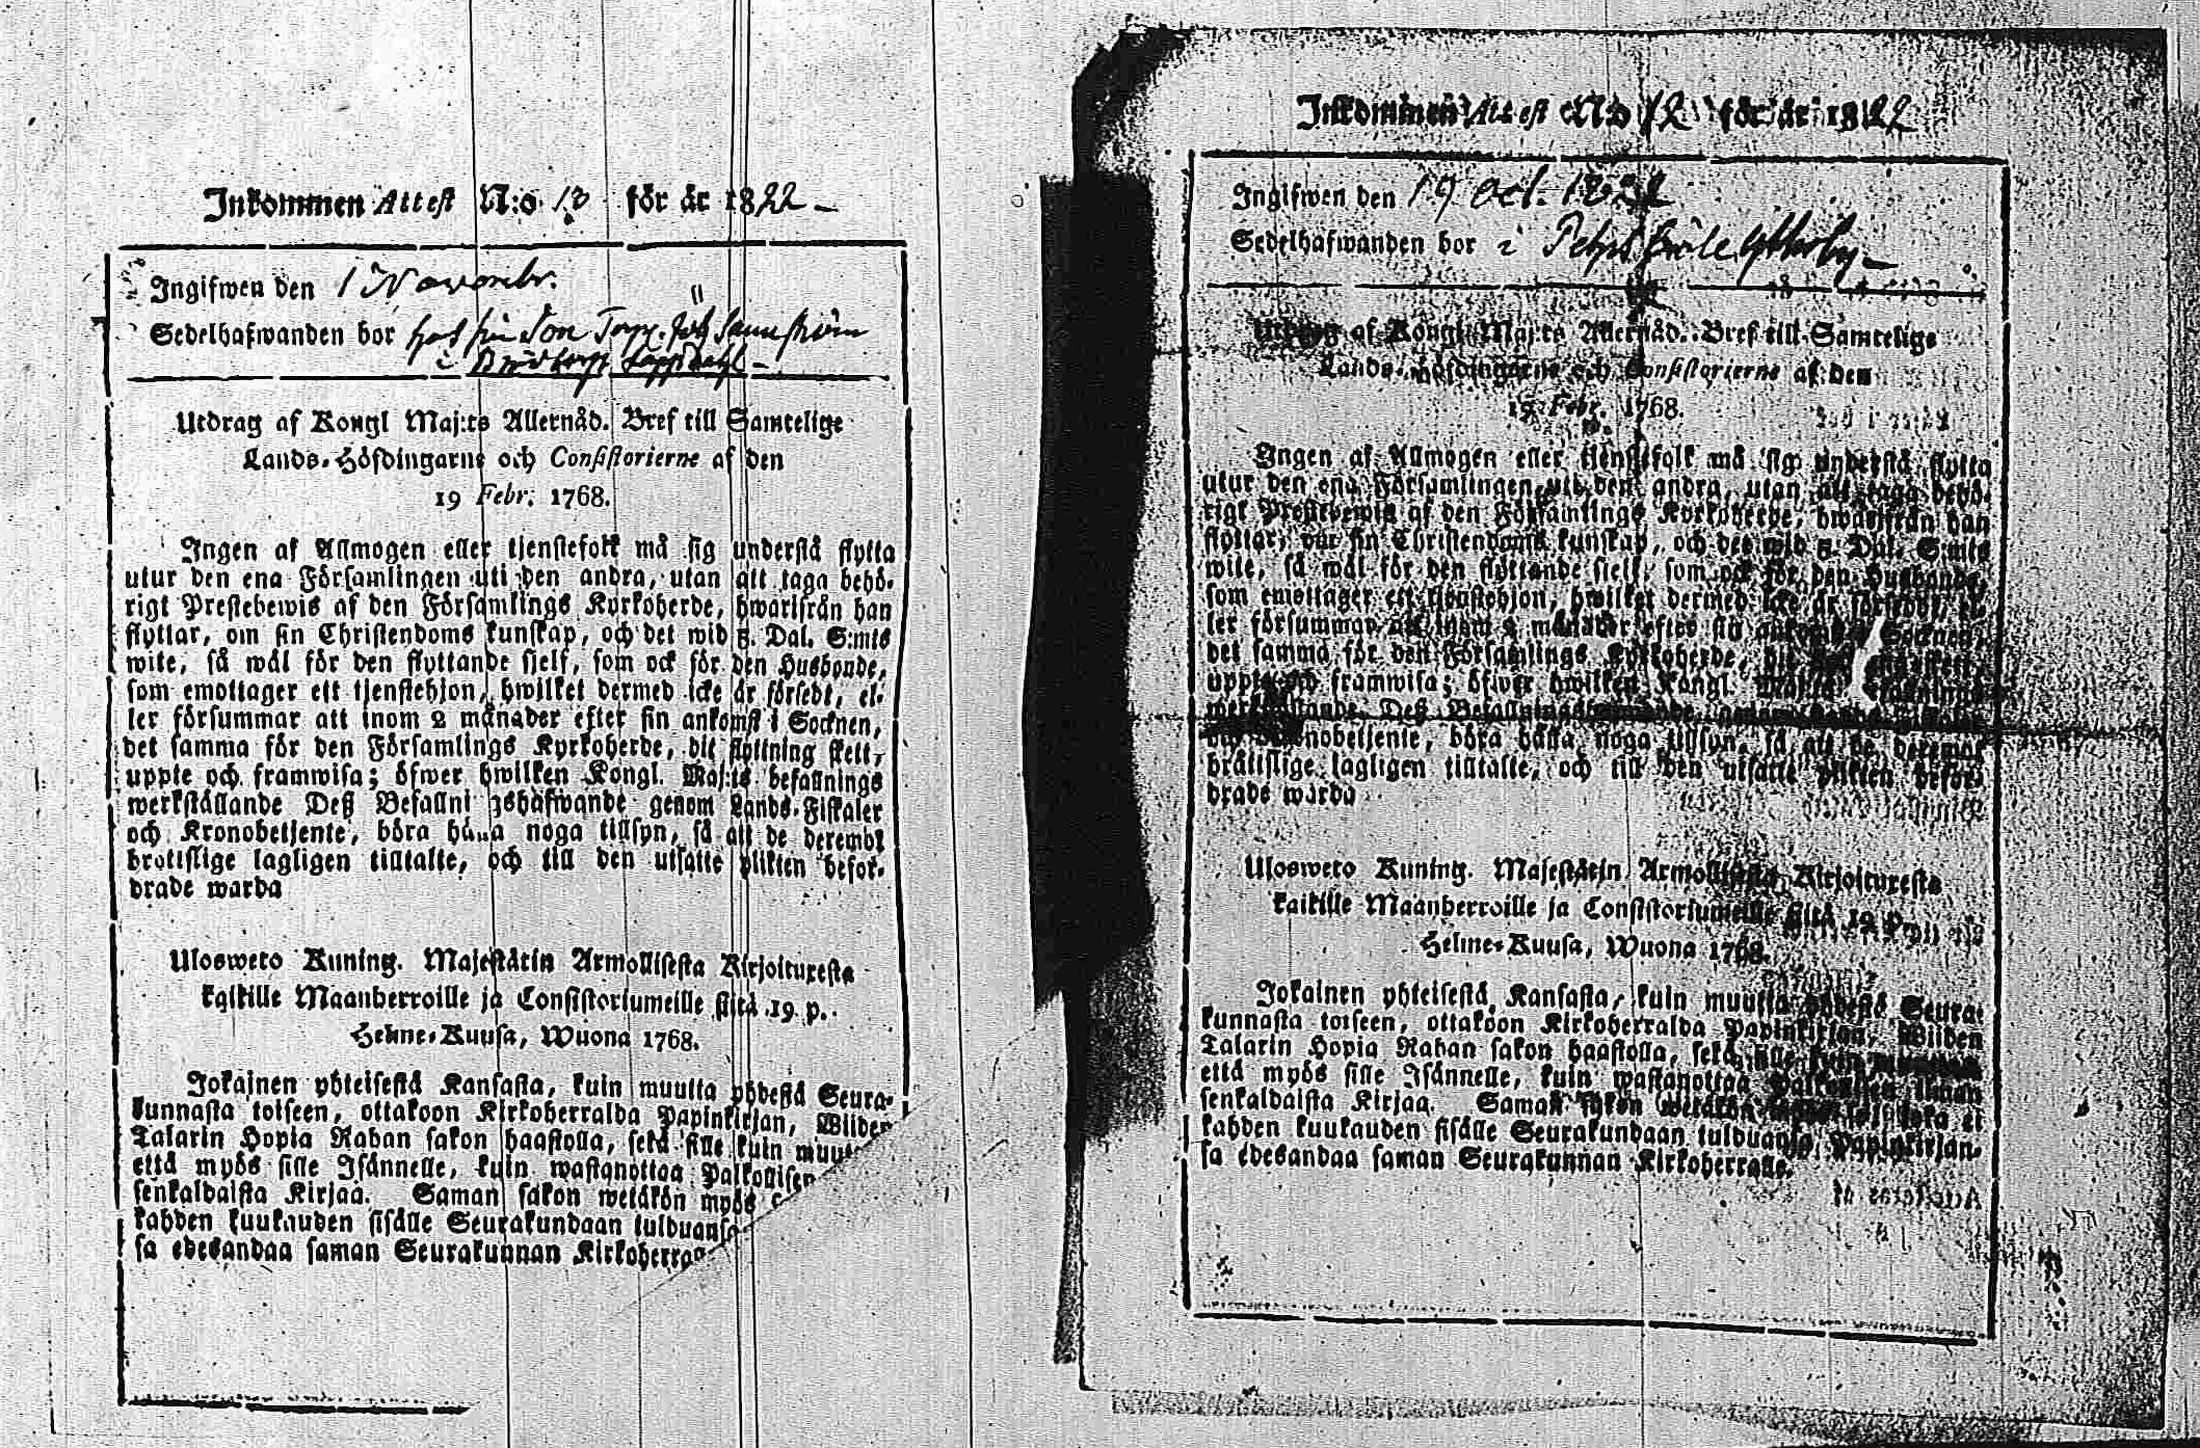 Inkommen Attest N:o 13 för år 1822
Ingifwen den 1 Novembr.
Sedelhafwanden bor hos sin Son Torp.
i
Utdrag af Kongl Maj:ts Allernåd. Bref till Samtelige
Lands-Höfdingarne och Consistorierne af den
19 Febr. 1768.
Ingen af Allmogen eller tjenstefolk må sig understå flytta
utur den ena Församlingen uti den andra, utan att taga behö-
rigt Prestebewis af den Församlings Kyrkoherde, hwarifrån han
flyttar, om sin Christendoms kunskap, och det wid 5. Dal. S:mts
wite, så wäl för den flyttande sjelf, som ock för den Husbonde,
som emottager ett tjenstehjon, hwilket dermed icke är försedt, el-
ler försummar att inom 2 månader efter sin ankomst i Socknen,
det samma för den Församlings Kyrkoherde, dit flyttning skett,
uppte och framwisa; öfwer hwilken Kongl. Maj:ts befallnings
werkställande Deß Befallningshafwande genom Lands-Fiskaler
och Kronobetjente, böra hålla noga tillsyn, så att de deremot
brottslige lagligen tilltalte, och till den utsatte plikten befor-
drade warda
Ulosweto Kuning. Majestätin Armollisesta Kirjoituxesta
kaikille Maanherroille ja Consistoriumeille siitä 19 p.
Helme-Kuusa, Wuona 1768.
Jokainen yhteisestä Kansasta, kuin muutta yhdestä Seura-
kunnasta toiseen, ottakoon Kirkoherralda Papinkirjan, Wiiden
Talarin Hopia Rahan sakon haastolla, sekä sille kuin muut
että myös sille Isännelle, kuin wastanottaa Palkollisen
senkaldaista Kirjaa. Saman sakon wetäkön myös
kahden kuukauden sisälle Seurakundaan tulduansa
sa edesandaa saman Seurakunnan Kirkoherra
Inkommen Attest N:o 12 för år 1822
Ingifwen den 19 Oct. 1822
Sedelhafwanden bor i Ytterby
Utdrag af Kongl Maj:ts Allernåd. Bref till Samtelige
Lands-Höfdingarne och Consistorierne af den
19 Febr. 1768.
Ingen af Allmogen eller tjenstefolk må sig understå flytta
utur den ena Församlingen uti den andra, utan att taga behö-
rigt Prestebewis af den Församlings Kyrkoherde, hwarifrån han
flyttar, om sin Christendoms kunskap, och det wid 5. Dal. S:mts
wite, så wäl för den flyttande sjelf, som ock för den Husbonde,
som emottager ett tjenstehjon, hwilket dermed icke är försedt, el-
ler försummar att inom 2 månader efter sin ankomst i Socknen,
det samma för den Församlings Kyrkoherde, dit
uppte och framwisa; öfwer hwilken Kongl. Maj:ts befallnings
werkställande Deß Befallningshafwande
och Kronobetjente, böra hålla noga tillsyn, så att de deremot
bråttslige lagligen tilltalte, och till den utsatte plikten befor-
drade warda
Ulosweto Kuning. Majestätin Armollisesta Kirjoituxesta
kaikille Maanherroille ja Consistoriumeille siitä 19 p.
Helme-Kuusa, Wuona 1768.
Jokainen yhteisestä Kansasta, kuin muutta yhdestä Seura-
kunnasta toiseen, ottakoon Kirkoherralda Papinkirjan, Wiiden
Talarin Hopia Rahan sakon haastolla, sekä sille kuin
että myös sille Isännelle, kuin wastanottaa Palkollisen ilman
senkaldaista Kirjaa. Saman sakon wetäkön myös joka ei
kahden kuukauden sisälle Seurakundaan tulduansa Papinkirjan-
sa edesandaa saman Seurakunnan Kirkoherralle.